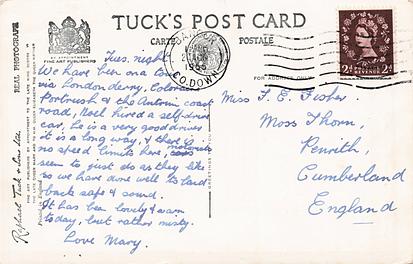 TUCK'S POST CARD
CARTE POSTALE
BY APPOINTMENT
FINE ART PUBLISHERS
REAL PHOTOGRAPH
Raphael Tuck & Sons Ltd.
FOR ADDRESS ONLY
CO. DOWN
REVENUE
2d 2d
Tues. night
We have been on a
via Londonderry,
Portrush & the Antrim coast
road, Noel hired a self-drive
car, he is a very good driver
it is a long way, & there is
no speed limits here, motorists
seem to just do as they like
so we have done well to land
back safe & sound.
It has been lovely & warm
today, but rather misty.
Love Mary.
Miss F. E. Fisher,
Moss Thorn,
Penrith,
Cumberland
England